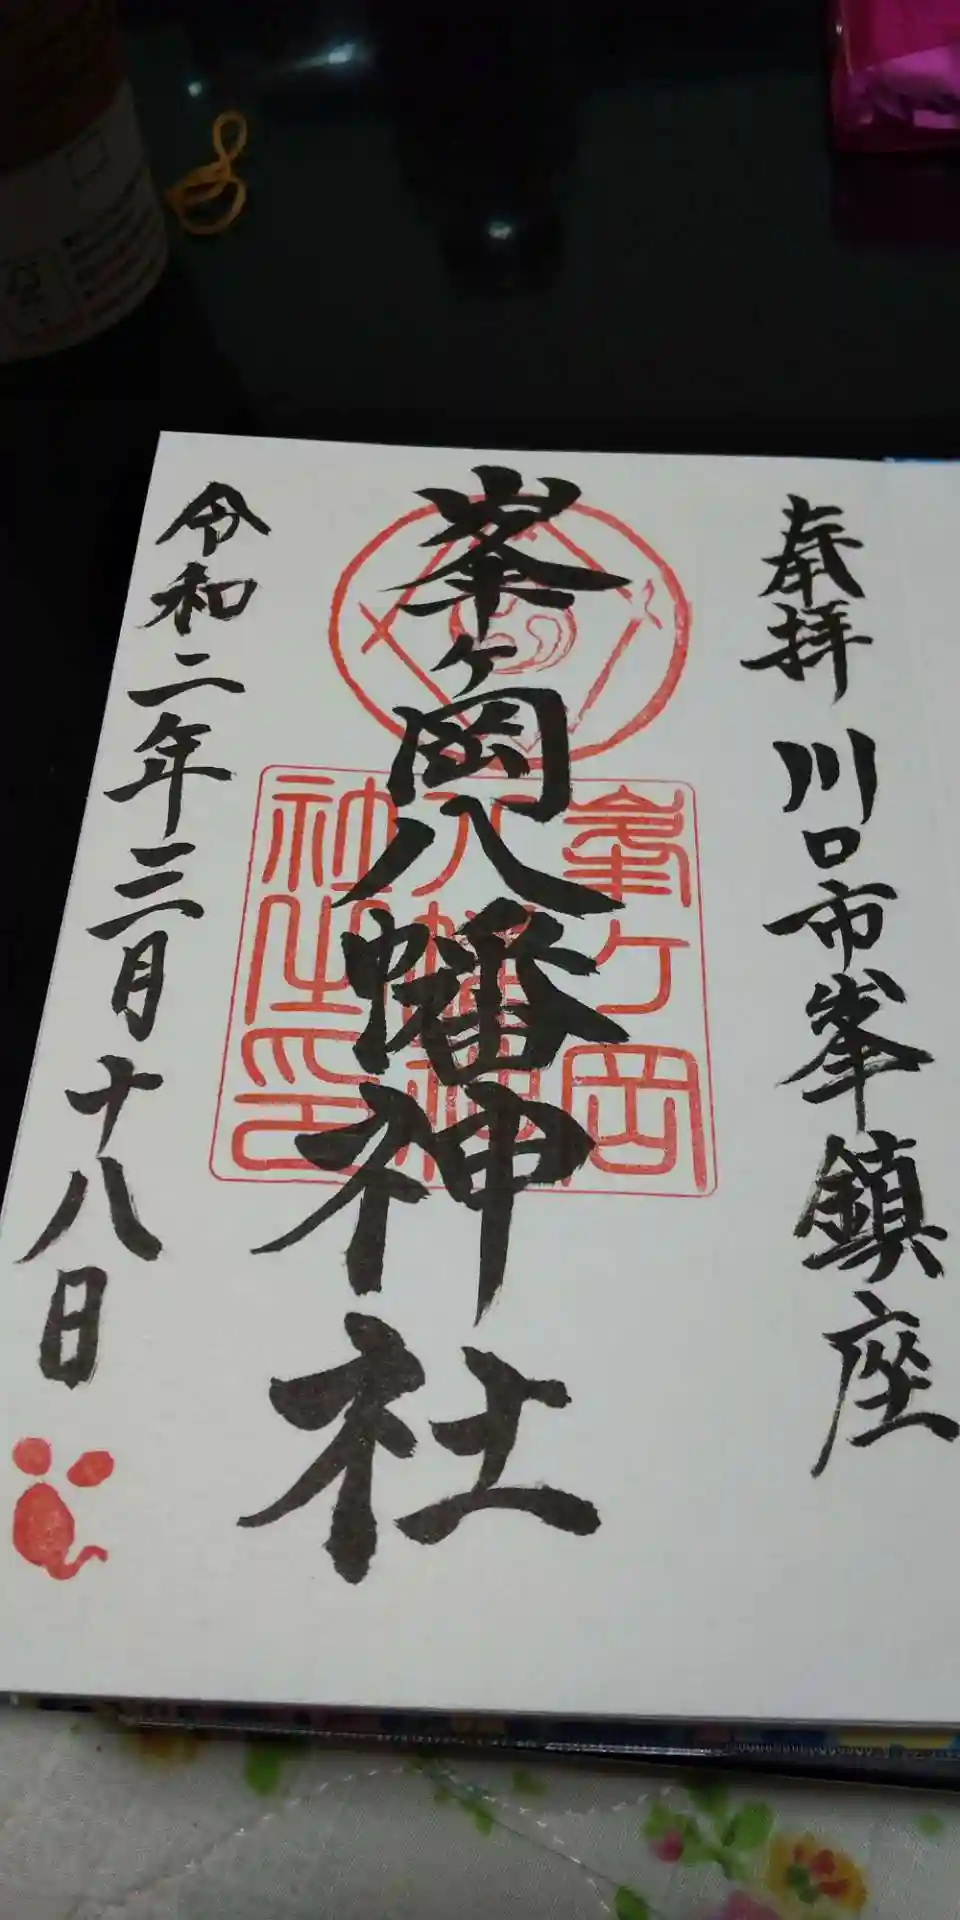 奉拝 川口市峯鎮座
峯ヶ岡八幡神社
峯ヶ岡
八幡神
社之印
令和二年三月十八日